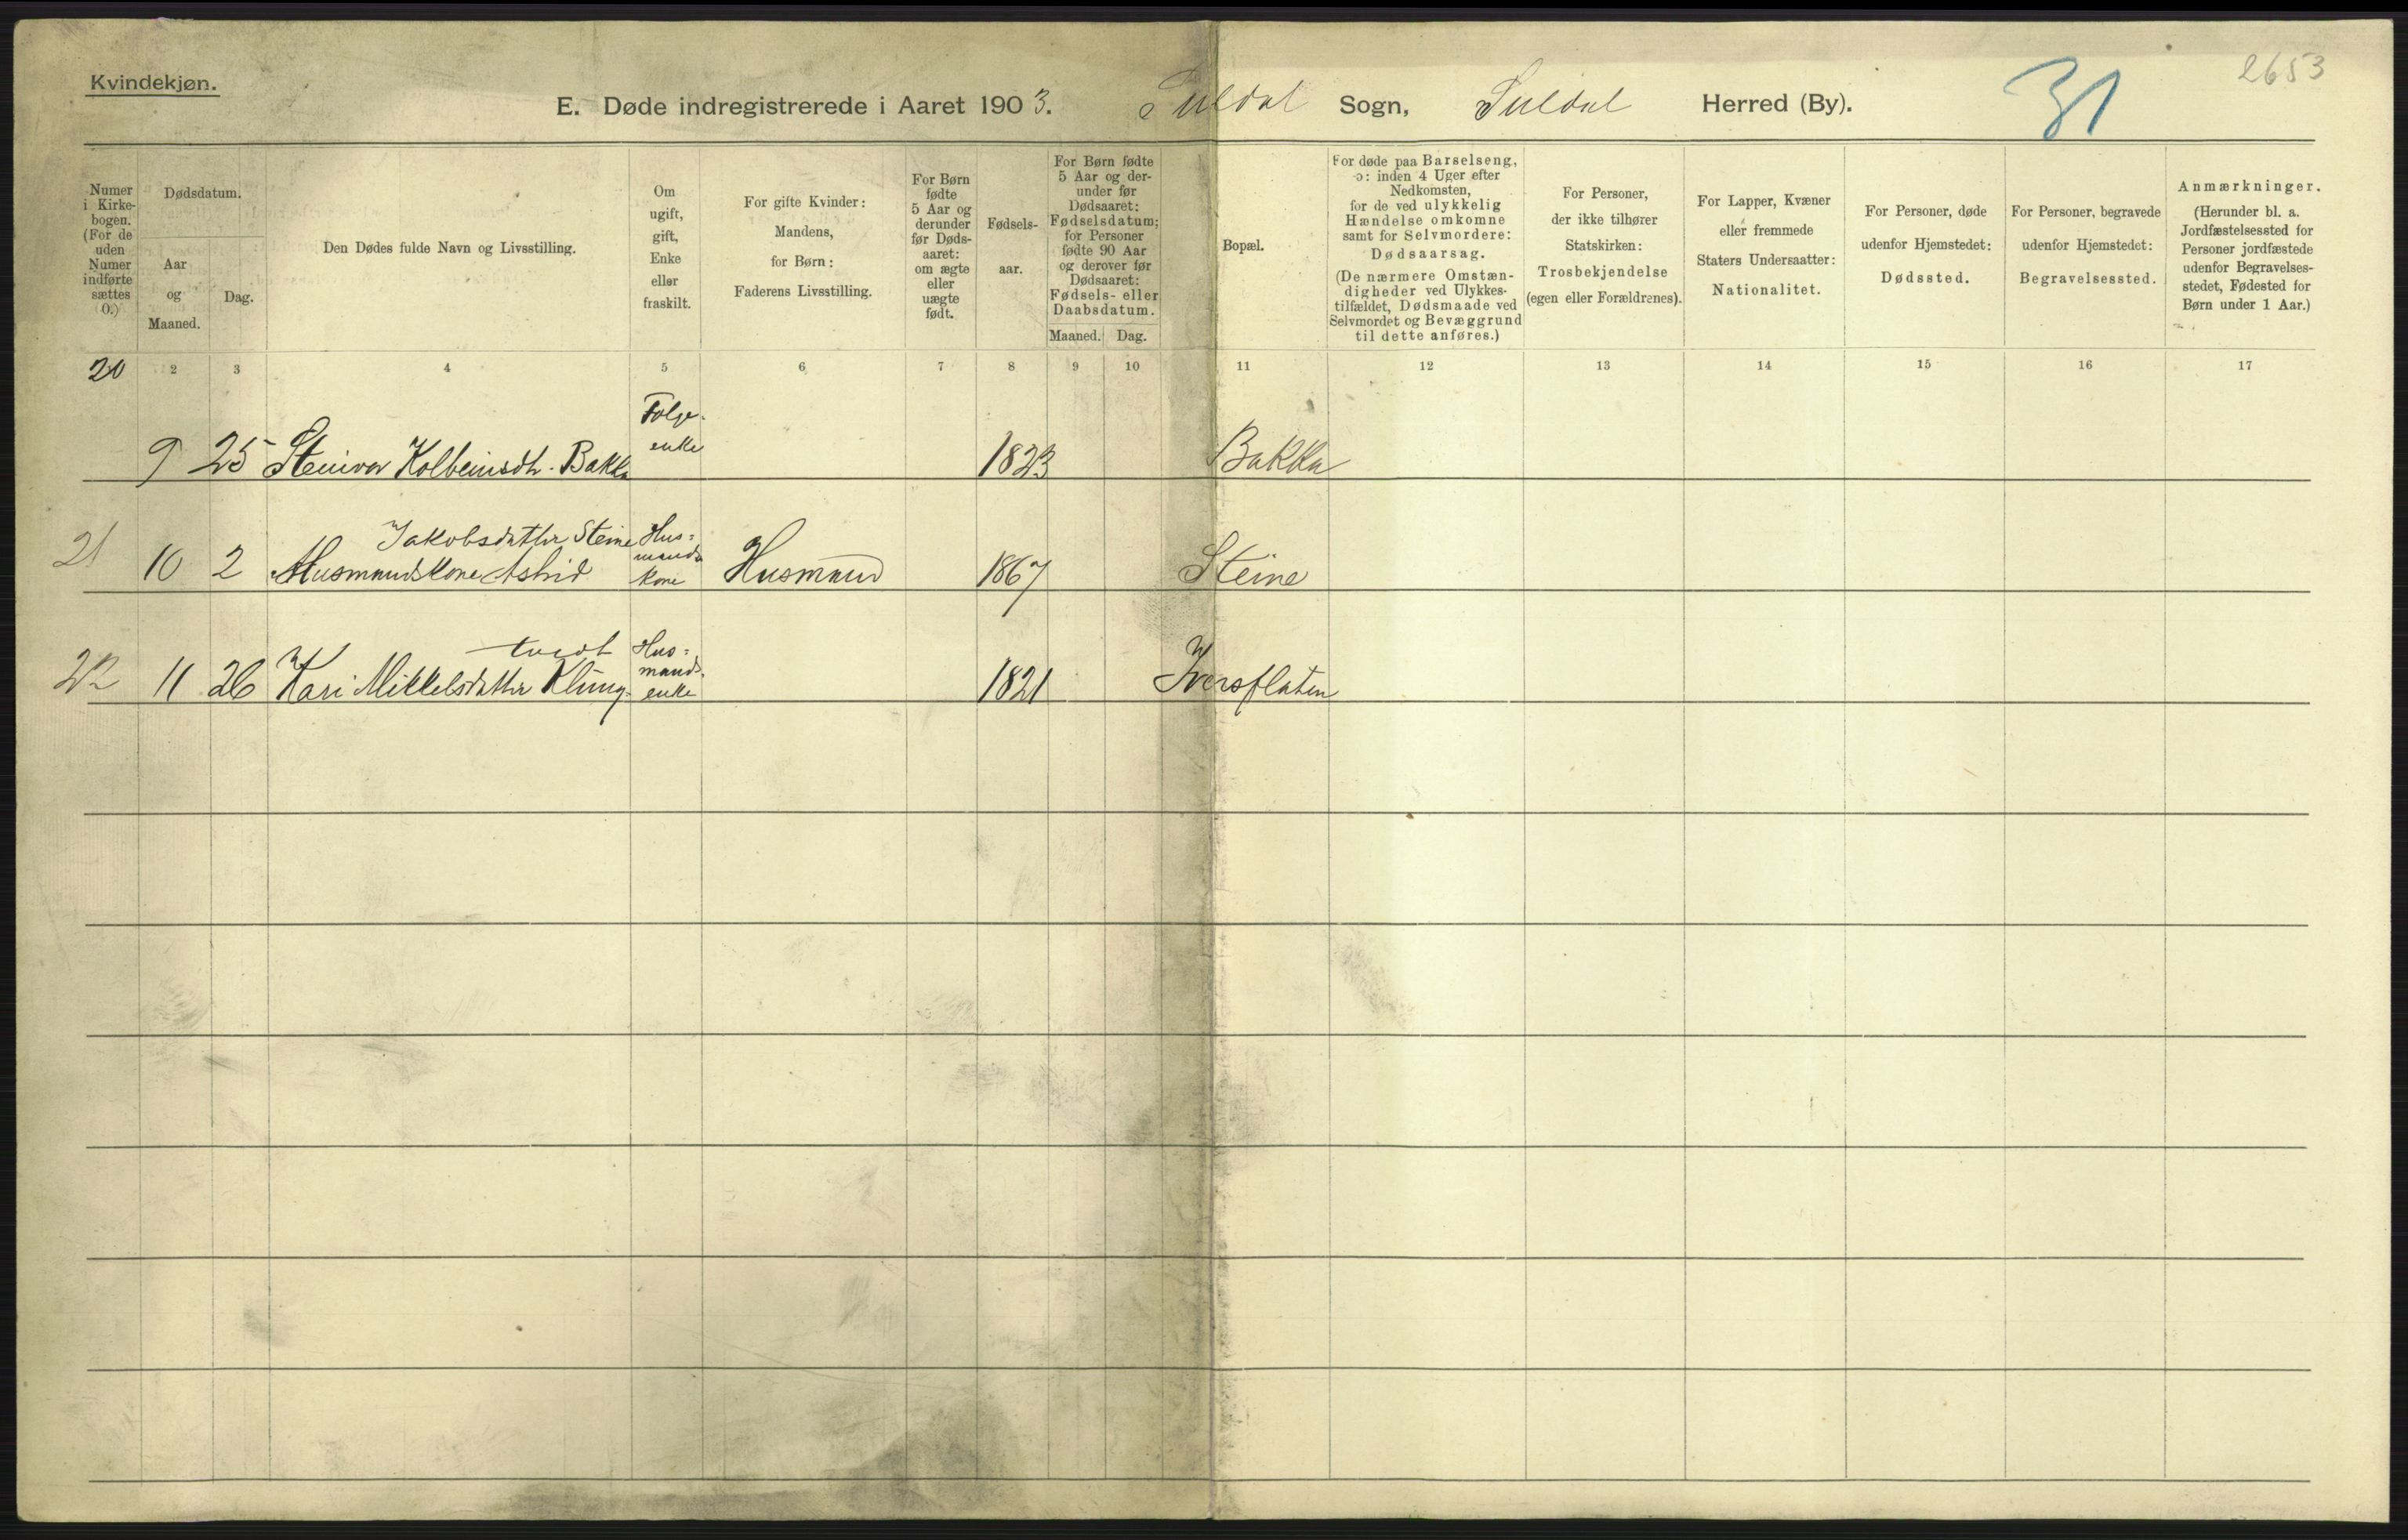 Kvindekjøn.
E. Døde indregistrerede i Aaret 1903. Suldal Sogn, Suldal Herred (By). 31 2653
Numer i Kirkebogen. (For de uden Numer indførte sættes 0.)
Dødsdatum.
Aar og Maaned.
Dag.
Den Dødes fulde Navn og Livsstilling.
Om ugift, gift, Enke eller fraskilt.
For gifte Kvinder: Mandens, for Børn: Faderens Livsstilling.
For Børn fødte 5 Aar og derunder før Dødsaaret: om ægte eller uægte født.
Fødselsaar.
For Børn fødte 5 Aar og derunder før Dødsaaret: Fødselsdatum; for Personer fødte 90 Aar og derover før Dødsaaret: Fødsels- eller Daabsdatum.
Maaned. Dag.
Bopæl.
For døde paa Barselseng, ɔ: inden 4 Uger efter Nedkomsten, for de ved ulykkelig Hændelse omkomne samt for Selvmordere: Dødsaarsag. (De nærmere Omstændigheder ved Ulykkestilfældet, Dødsmaade ved Selvmordet og Bevæggrund til dette anføres.)
For Personer, der ikke tilhører Statskirken: Trosbekjendelse (egen eller Forældrenes).
For Lapper, Kvæner eller fremmede Staters Undersaatter: Nationalitet.
For Personer, døde udenfor Hjemstedet: Dødssted.
For Personer, begravede udenfor Hjemstedet: Begravelsessted.
Anmærkninger. (Herunder bl. a. Jordfæstelsessted for Personer jordfæstede udenfor Begravelsesstedet, Fødested for Børn under 1 Aar.)
20 2 3 4 5 6 7 8 9 10 11 12 13 14 15 16 17
Folge-
enke
9 25 Steinvor Kolbeinsdtr. Bakka 1823 Bakka
Jakobsdatter Steine Hus=
mands
21 10 2 Husmandskone Astrid kone Husmand 1867 Steine
tvedt Hus=
mands
22 11 26 Kari Mikkelsdatter Klung- enke 1821 Iversflaten